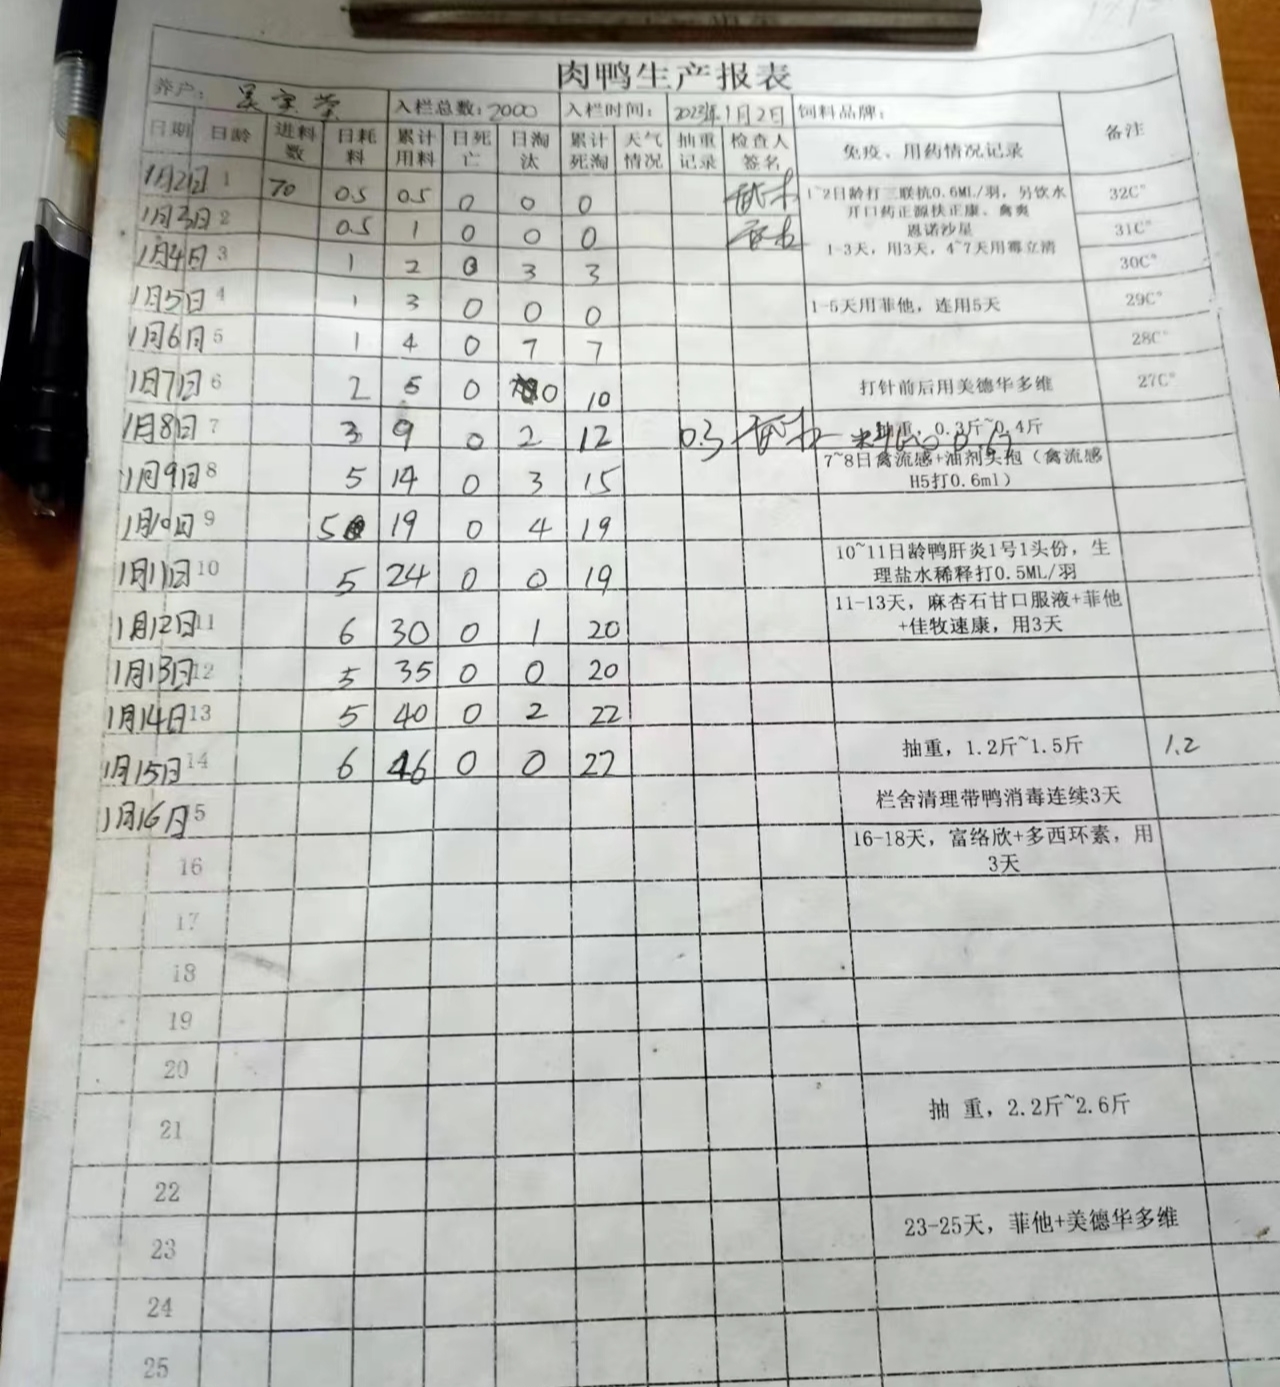 肉鸭生产报表
养户: 入栏总数: 2000 入栏时间: 2023年1月2日 饲料品牌: 备注
日期 日龄 进料数 日耗料 累计用料 日死亡 日淘汰 累计死淘 天气情况 抽重记录 检查人签名 免疫、用药情况记录
1月2日 1 70 0.5 0.5 0 0 0 1~2日龄打三联抗0.6ML/羽, 另饮水 32C°
开口药正源扶正康、禽爽
1月3日 2 0.5 1 0 0 0 恩诺沙星 31C°
1月4日 3 1 2 0 3 3 1-3天, 用3天, 4~7天用霉立清 30C°
1月5日 4 1 3 0 0 0 1-5天用菲他, 连用5天 29C°
1月6日 5 1 4 0 7 7 28C°
1月7日 6 2 5 0 0 10 打针前后用美德华多维 27C°
1月8日 7 3 9 0 2 12 0.3 抽重, 0.3斤~0.4斤
1月9日 8 5 14 0 3 15 7~8日禽流感+油剂头孢（禽流感
H5打0.6ml）
1月10日 9 5 19 0 4 19
1月11日 10 5 24 0 0 19 10~11日龄鸭肝炎1号1头份, 生
理盐水稀释打0.5ML/羽
1月12日 11 6 30 0 1 20 11-13天, 麻杏石甘口服液+菲他
+佳牧速康, 用3天
1月13日 12 5 35 0 0 20
1月14日 13 5 40 0 2 22
1月15日 14 6 46 0 0 22 抽重, 1.2斤~1.5斤 1.2
1月16日 15 栏舍清理带鸭消毒连续3天
16 16-18天, 富络欣+多西环素, 用
3天
17
18
19
20
21 抽 重, 2.2斤~2.6斤
22
23 23-25天, 菲他+美德华多维
24
25